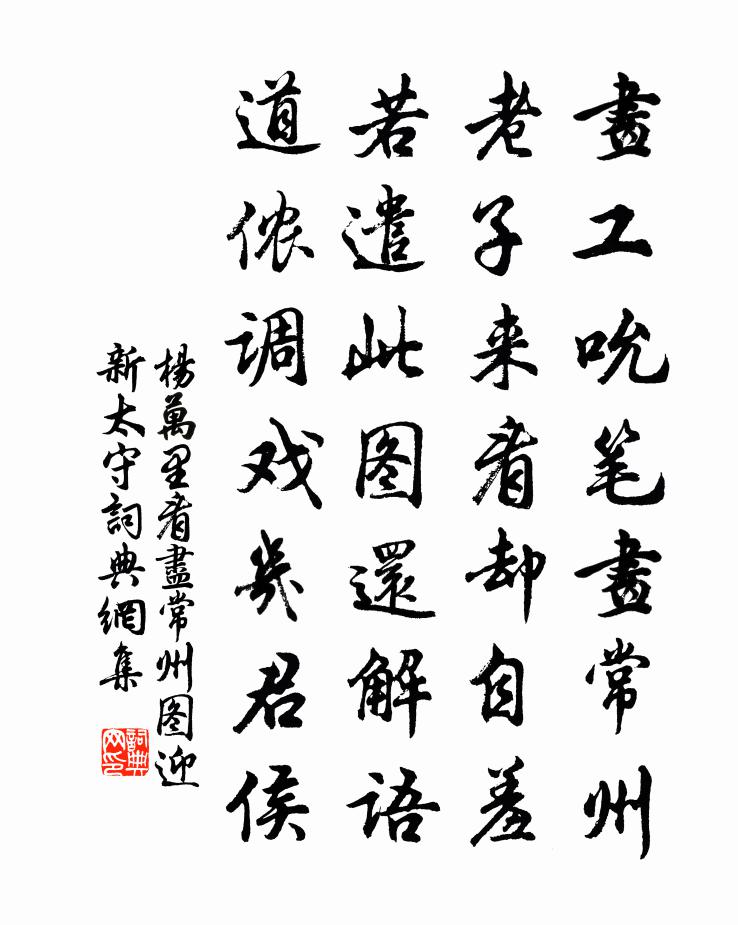 畫工吮笔畫常州
老子来看却自羞
若遣此图還解語
道侬调戏幾君侯
楊萬里看盡常州图迎
新太守詞典網集
詞典网印